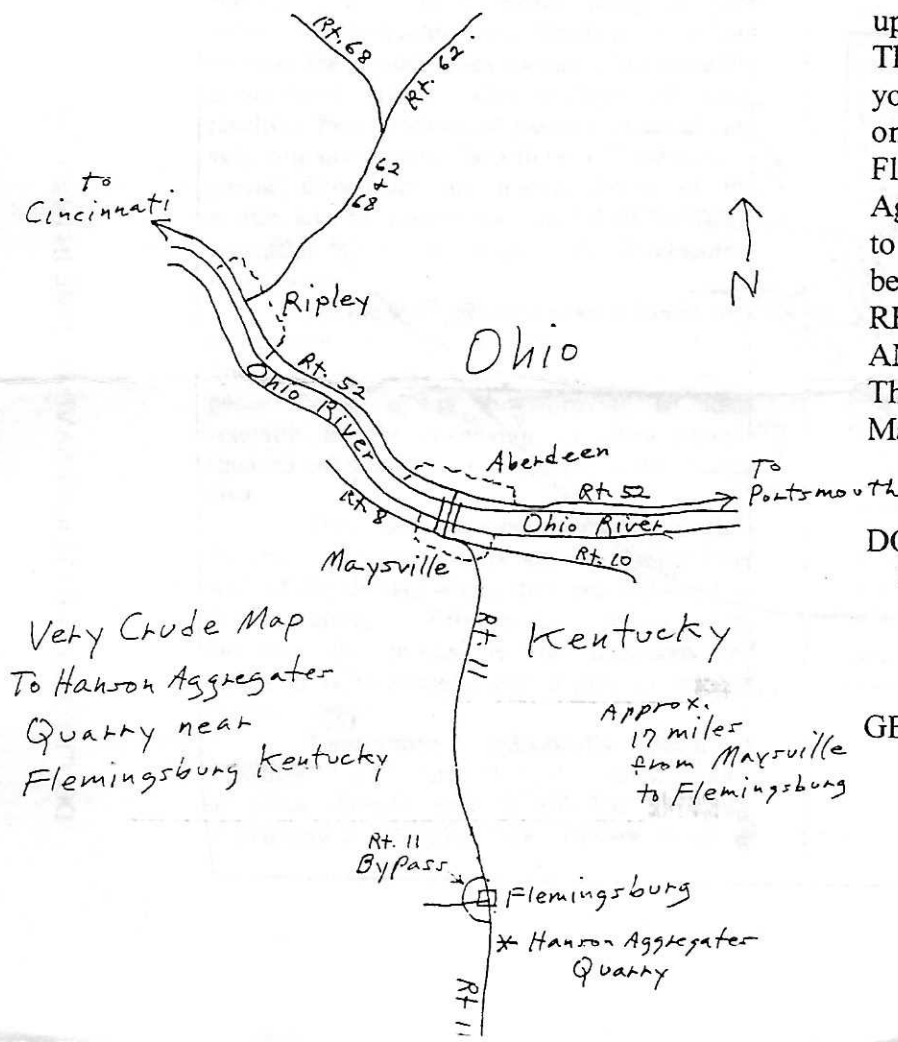 Rt. 68
Rt. 62.
62
+
68
to
Cincinnati
N
Ripley
Ohio
Rt. 52
Ohio River
Aberdeen
Rt. 52
To
Portsmouth
Rt. 8
Ohio River
Rt. 10
Maysville
Rt 11
Kentucky
Very Crude Map
To Hanson Aggregates
Quarry near
Flemingsburg Kentucky
Approx.
17 miles
from Maysville
to Flemingsburg
Rt. 11
Bypass
Flemingsburg
* Hanson Aggregates
Quarry
Rt 11
up
Th
yo
on
Fl
Ag
to
be
RE
AN
Th
Ma
DO
GE